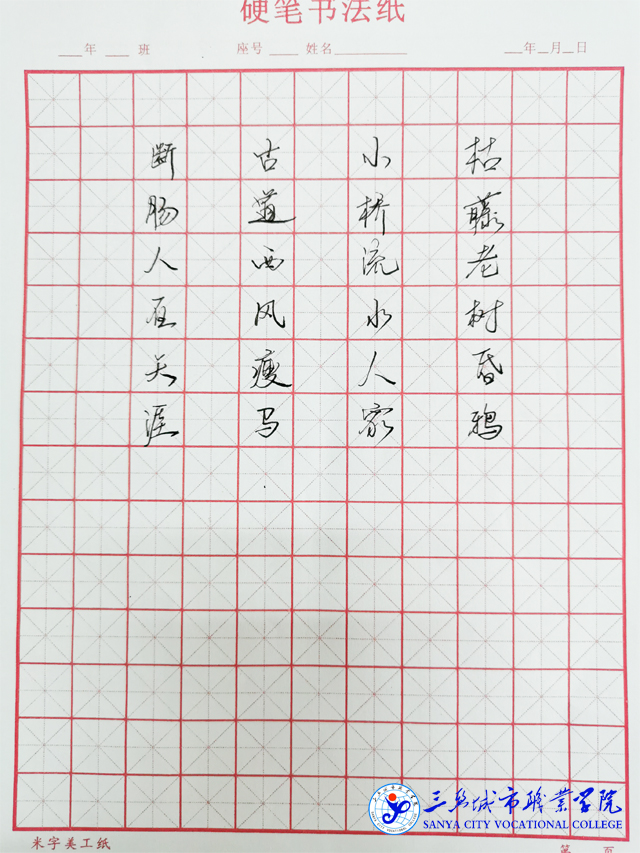 硬笔书法纸
年 班 座号 姓名 年 月 日
枯藤老树昏鸦
小桥流水人家
古道西风瘦马
断肠人在天涯
米字美工纸
第 页
三亚城市职业学院
SANYA CITY VOCATIONAL COLLEGE